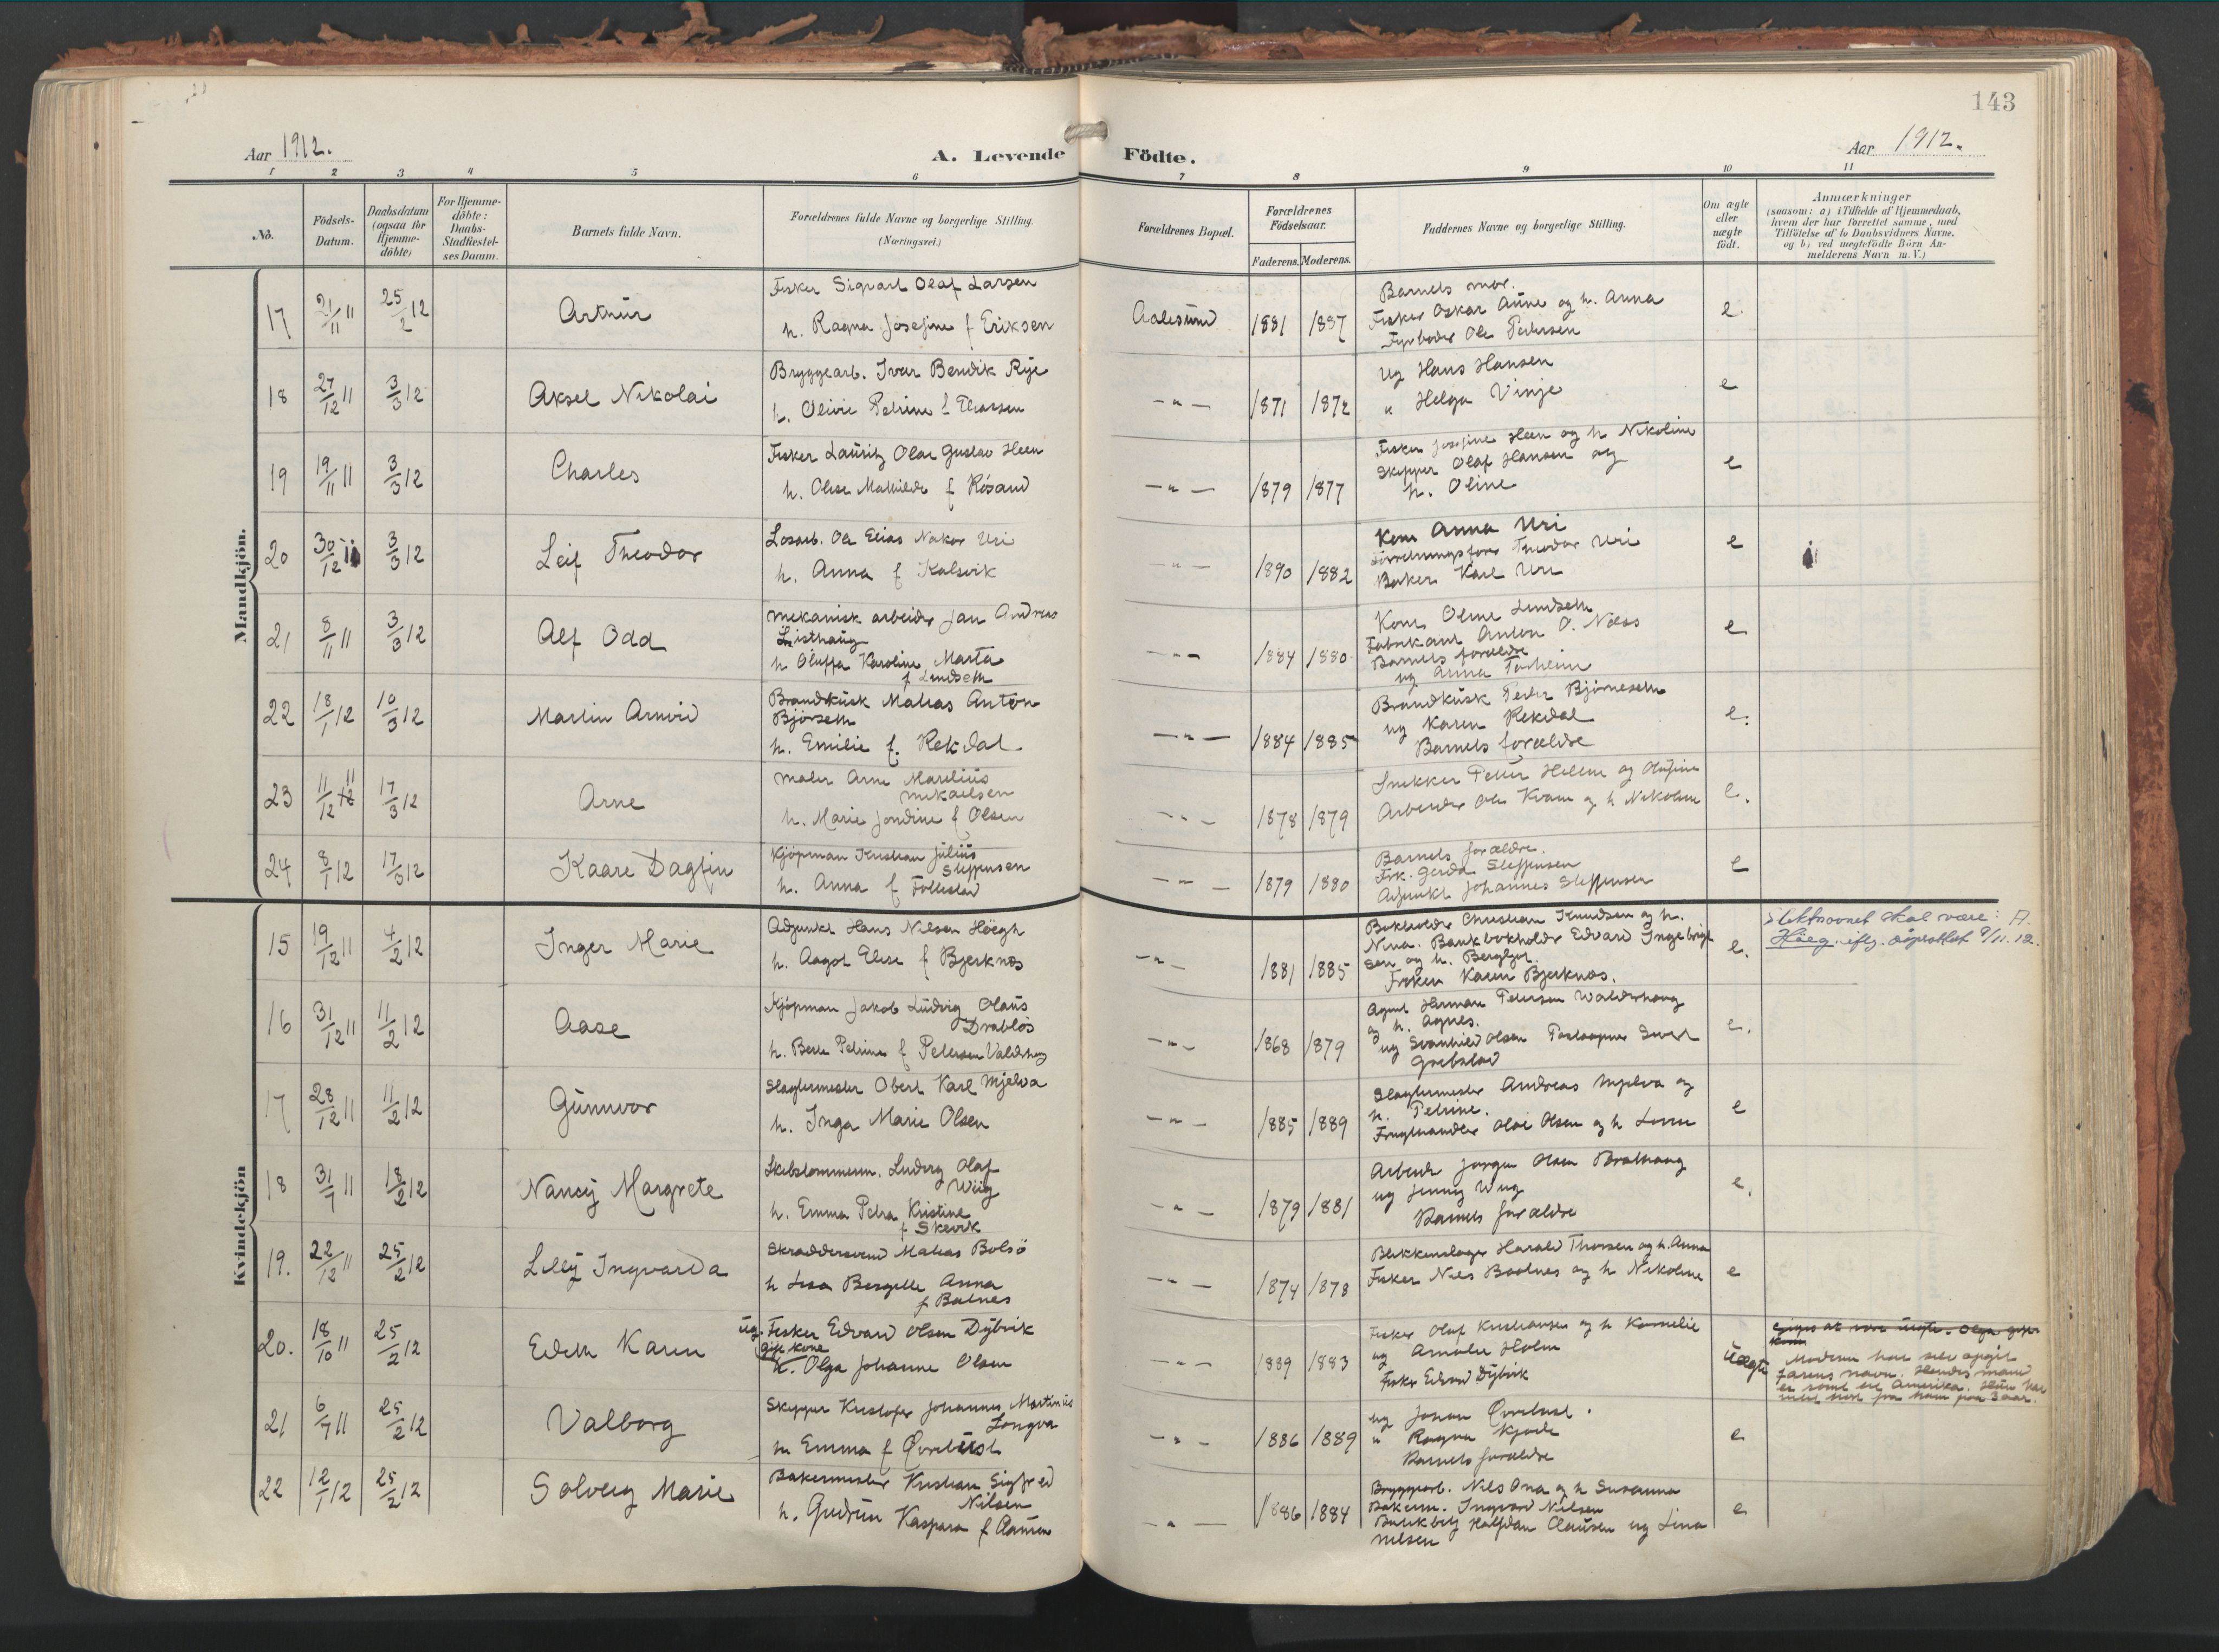 143
Aar 1912.
A. Levende Födte.
Aar 1912.
1 2 3 4 5 6 7 8 9 10 11
No.
Födsels-Datum.
Daabsdatum (ogsaa for Hjemme-döbte)
For Hjemme-döbte: Daabs-Stadfæstel-ses Datum.
Barnets fulde Navn.
Forældrenes fulde Navne og borgerlige Stilling.
(Næringsvei.)
Forældrenes Bopæl.
Forældrenes Födselsaar.
Faderens. Moderens.
Faddernes Navne og borgerlige Stilling.
Om ægte eller uægte födt.
Anmærkninger
(saasom: a) i Tilfælde af Hjemmedaab,
hvem der har forrettet samme, med
Tilföielse af to Daabsvidners Navne,
og b) ved uægtefödte Börn An-
melderens Navn m. V.)
Mandkjön.
17 21/11 11 25/2 12 Arthur
Fisker Sigvart Olaf Larsen
h. Ragna Josefine f Eriksen
Aalesund 1881 1887
Barnets mor.
Fisker Oskar Aune og h. Anna
Fyrböder Ole Pedersen
e.
18 27/12 11 3/3 12 Aksel Nikolai
Bryggearb. Ivar Bendik Rye
h. Olivie Petrine f Thorsen
— " — 1871 1872
ug Hans Hansen
" Helga Vinje
e
19 19/11 11 3/3 12 Charles
Fisker Lauritz Olai Gustav Heen
h. Olise Mathilde f Rösand
— " — 1879 1877
Fisker Josefine Heen og h Nikoline
Skipper Olaf Hansen og
h. Oline
e
20 30/12 11 3/3 12 Leif Theodor
Losarb. Ole Elias Uri
h. Anna f Kalsvik
— " — 1890 1882
Kone Anna Uri
Theodor Uri
Baker Karl Uri
e
21 8/11 11 3/3 12 Alf Odd
mekanisk arbeider Jan Andreas
Listhaug
h Oluffa Karoline Marta
f Lindseth
— " — 1884 1880
Kone Oline Lindseth
Fabrikant Anton O. Næss
Barnets forældre
ug Anna Torheim
e
22 18/1 12 10/3 12 Martin Arnvid
Brandkusk Matias Anton
Björseth
h. Emilie f. Rekdal.
— " — 1884 1885
Brandkusk Peder Björneseth
ug Karen Rekdal
Barnets forældre
e.
23 11/12 11 17/3 12 Arne
maler Arne Marelius
Mikaelsen
h. Marie Jondine f Olsen
— " — 1878 1879
Snekker Petter Hellem og Olufine
Arbeider Ole Kvam og h Nikoline
e.
24 8/1 12 17/3 12 Kaare Dagfin
Kjöpman Kristian Julius
Steffensen
h. Anna f Follestad
— " — 1879 1880
Barnets forældre.
Frk. Gerda Steffensen
Adjunkt Johannes Steffensen
e
Kvindekjön
15 19/12 11 4/2 12 Inger Marie
Adjunkt Hans Nilsen Höegh
h. Aagot Elise f Bjerknæs
— " — 1881 1885
Bokholder Christian Knudsen og h.
Nina. Bankbokholder Edvard Ingebrigt
sen og h. Bergljot.
Fröken Karen Bjerknæs.
e.
Slektsnavnet skal være: A.
Höeg. iflg. 9/11. 12.
16 31/12 11 11/2 12 Aase
Kjöpman Jakob Ludvig Olaus
Drablös
h. Berte Petrine f Petersen Valderhaug
— " — 1868 1879
Agent Herman Petersen Walderhaug
og h. Agnes.
ug Svanhild Olsen
Grebstad
e.
17 28/12 11 11/2 12 Gunnvor
Slagtermester Obert Karl Mjelva
h. Inga Marie Olsen
— " — 1885 1889
Slagtermester Andreas Mjelva og
h. Petrine.
Frugthandler Olai Olsen og h Lovise
e
18 31/7 11 18/2 12 Nancy Margrete
Skibstømmerm. Ludvig Olaf
Wiig
h. Emma Petra Kristine
f Skevik
— " — 1879 1881
Arbeider Jørgen Olsen Brathaug
ug Jenny Wiig
Barnets forældre
e.
19. 22/12 11 25/2 12 Lilly Ingvarda
Skræddersvend Matias Bolsö
h Lisa Bergitte Anna
f Balnes
— " — 1874 1878
Blikkenslager Harald Thorsen og h. Anna
Fisker Nils Baalnes og h Nikoline
e
20. 18/10 11 25/2 12 Edith Karen
ug. Fisker Edvard Olsen Dybvik
gift kone
K. Olga Johanne Olsen
— " — 1889 1883
Fisker Olaf Kristiansen og h Kornelie
ug Amalie Holm
Fisker Edvard Dybvik
Uægte
Moderen har selv opgit
farens navn. Hendes mand
er reist til Amerika. Hun har
intet hørt fra ham paa 3 aar.
21 6/7 11 25/2 12 Valborg
Skipper Kristofer Johannes Martinus
Longva
h Emma f Øvrelist
— " — 1886 1889
ug Johan Øvrelist.
" Ragna Kjode
Barnets forældre
e
22 12/1 12 25/2 12 Solveig Marie
Bakermester Kristian Sigfred
Nilsen
h. Gudrun Kaspara f Clausen
— " — 1886 1884
Bryggearb. Nils Ona og h Susanna
Bakerm. Ingvard Nilsen
Halfdan Clausen ug Lina
Nilsen
e